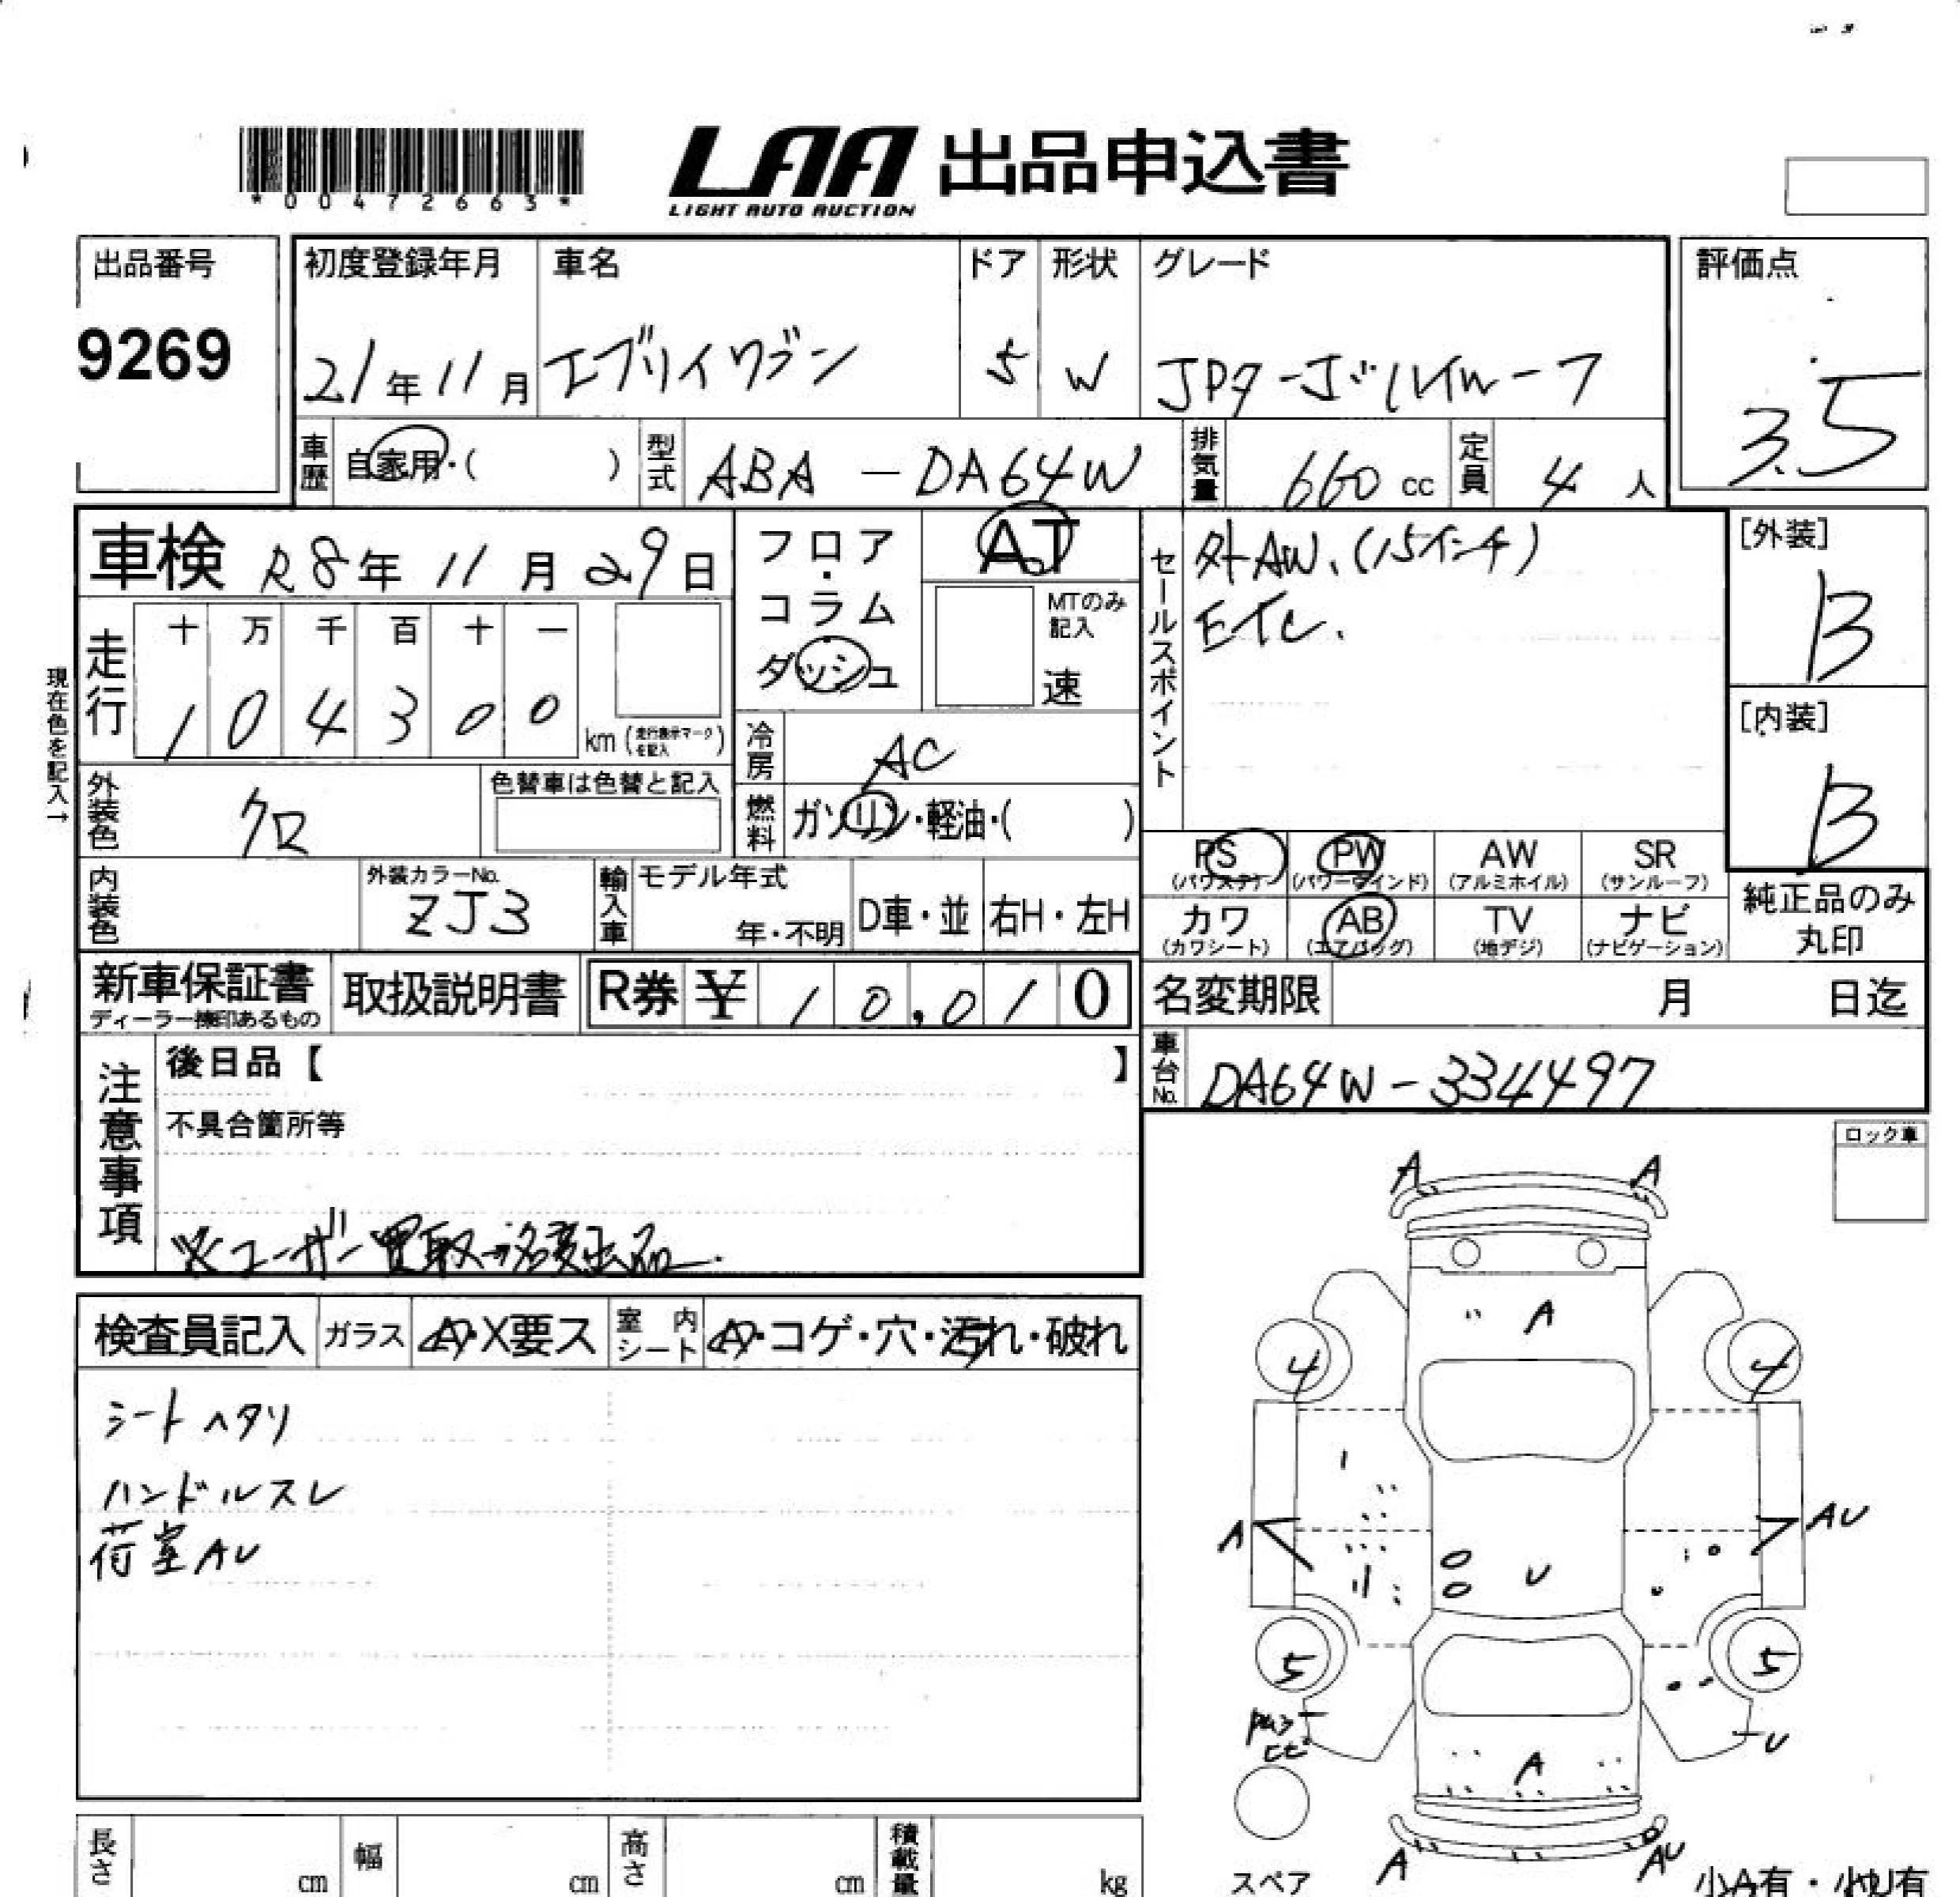 *00472663*
LAA 出品申込書
LIGHT AUTO AUCTION
出品番号
9269
初度登録年月
21年11月
車名
エブリイワゴン
ドア
5
形状
W
グレード
JPターボハイルーフ
評価点
3.5
車歴
自家用・( )
型式
ABA-DA64W
排気量
660 cc
定員
4 人
車検 R8年 11月 29日
走行
十 万 千 百 十 一
1 0 4 3 0 0
km (走行表示マークを記入)
現在色を記入→
外装色
クロ
色替車は色替と記入
内装色
外装カラーNo.
ZJ3
フロア・コラム
ダッシュ
AT
MTのみ記入
速
冷房
AC
燃料
ガソリン・軽油・( )
輸入車
モデル年式
年・不明
D車・並
右H・左H
セールスポイント
外AW.(15インチ)
ETC.
[外装]
B
[内装]
B
PS (パワステ)
PW (パワーウインド)
AW (アルミホイル)
SR (サンルーフ)
カワ (カワシート)
AB (エアバッグ)
TV (地デジ)
ナビ (ナビゲーション)
純正品のみ丸印
新車保証書
ディーラー捺印あるもの
取扱説明書
R券 ¥ 10,010
名変期限 月 日迄
車台No.
DA64W-334497
注意事項
後日品【 】
不具合箇所等
※ユーザー買取→名変出品.
ロック車
検査員記入
ガラス
A・X要ス
室内シート
A・コゲ・穴・汚れ・破れ
シートヘタリ
ハンドルスレ
荷室AU
A
A
A
4
4
A
AU
U
5
5
U
A
A
AU
スペア
小A有・小U有
長さ cm
幅 cm
高さ cm
積載量 kg